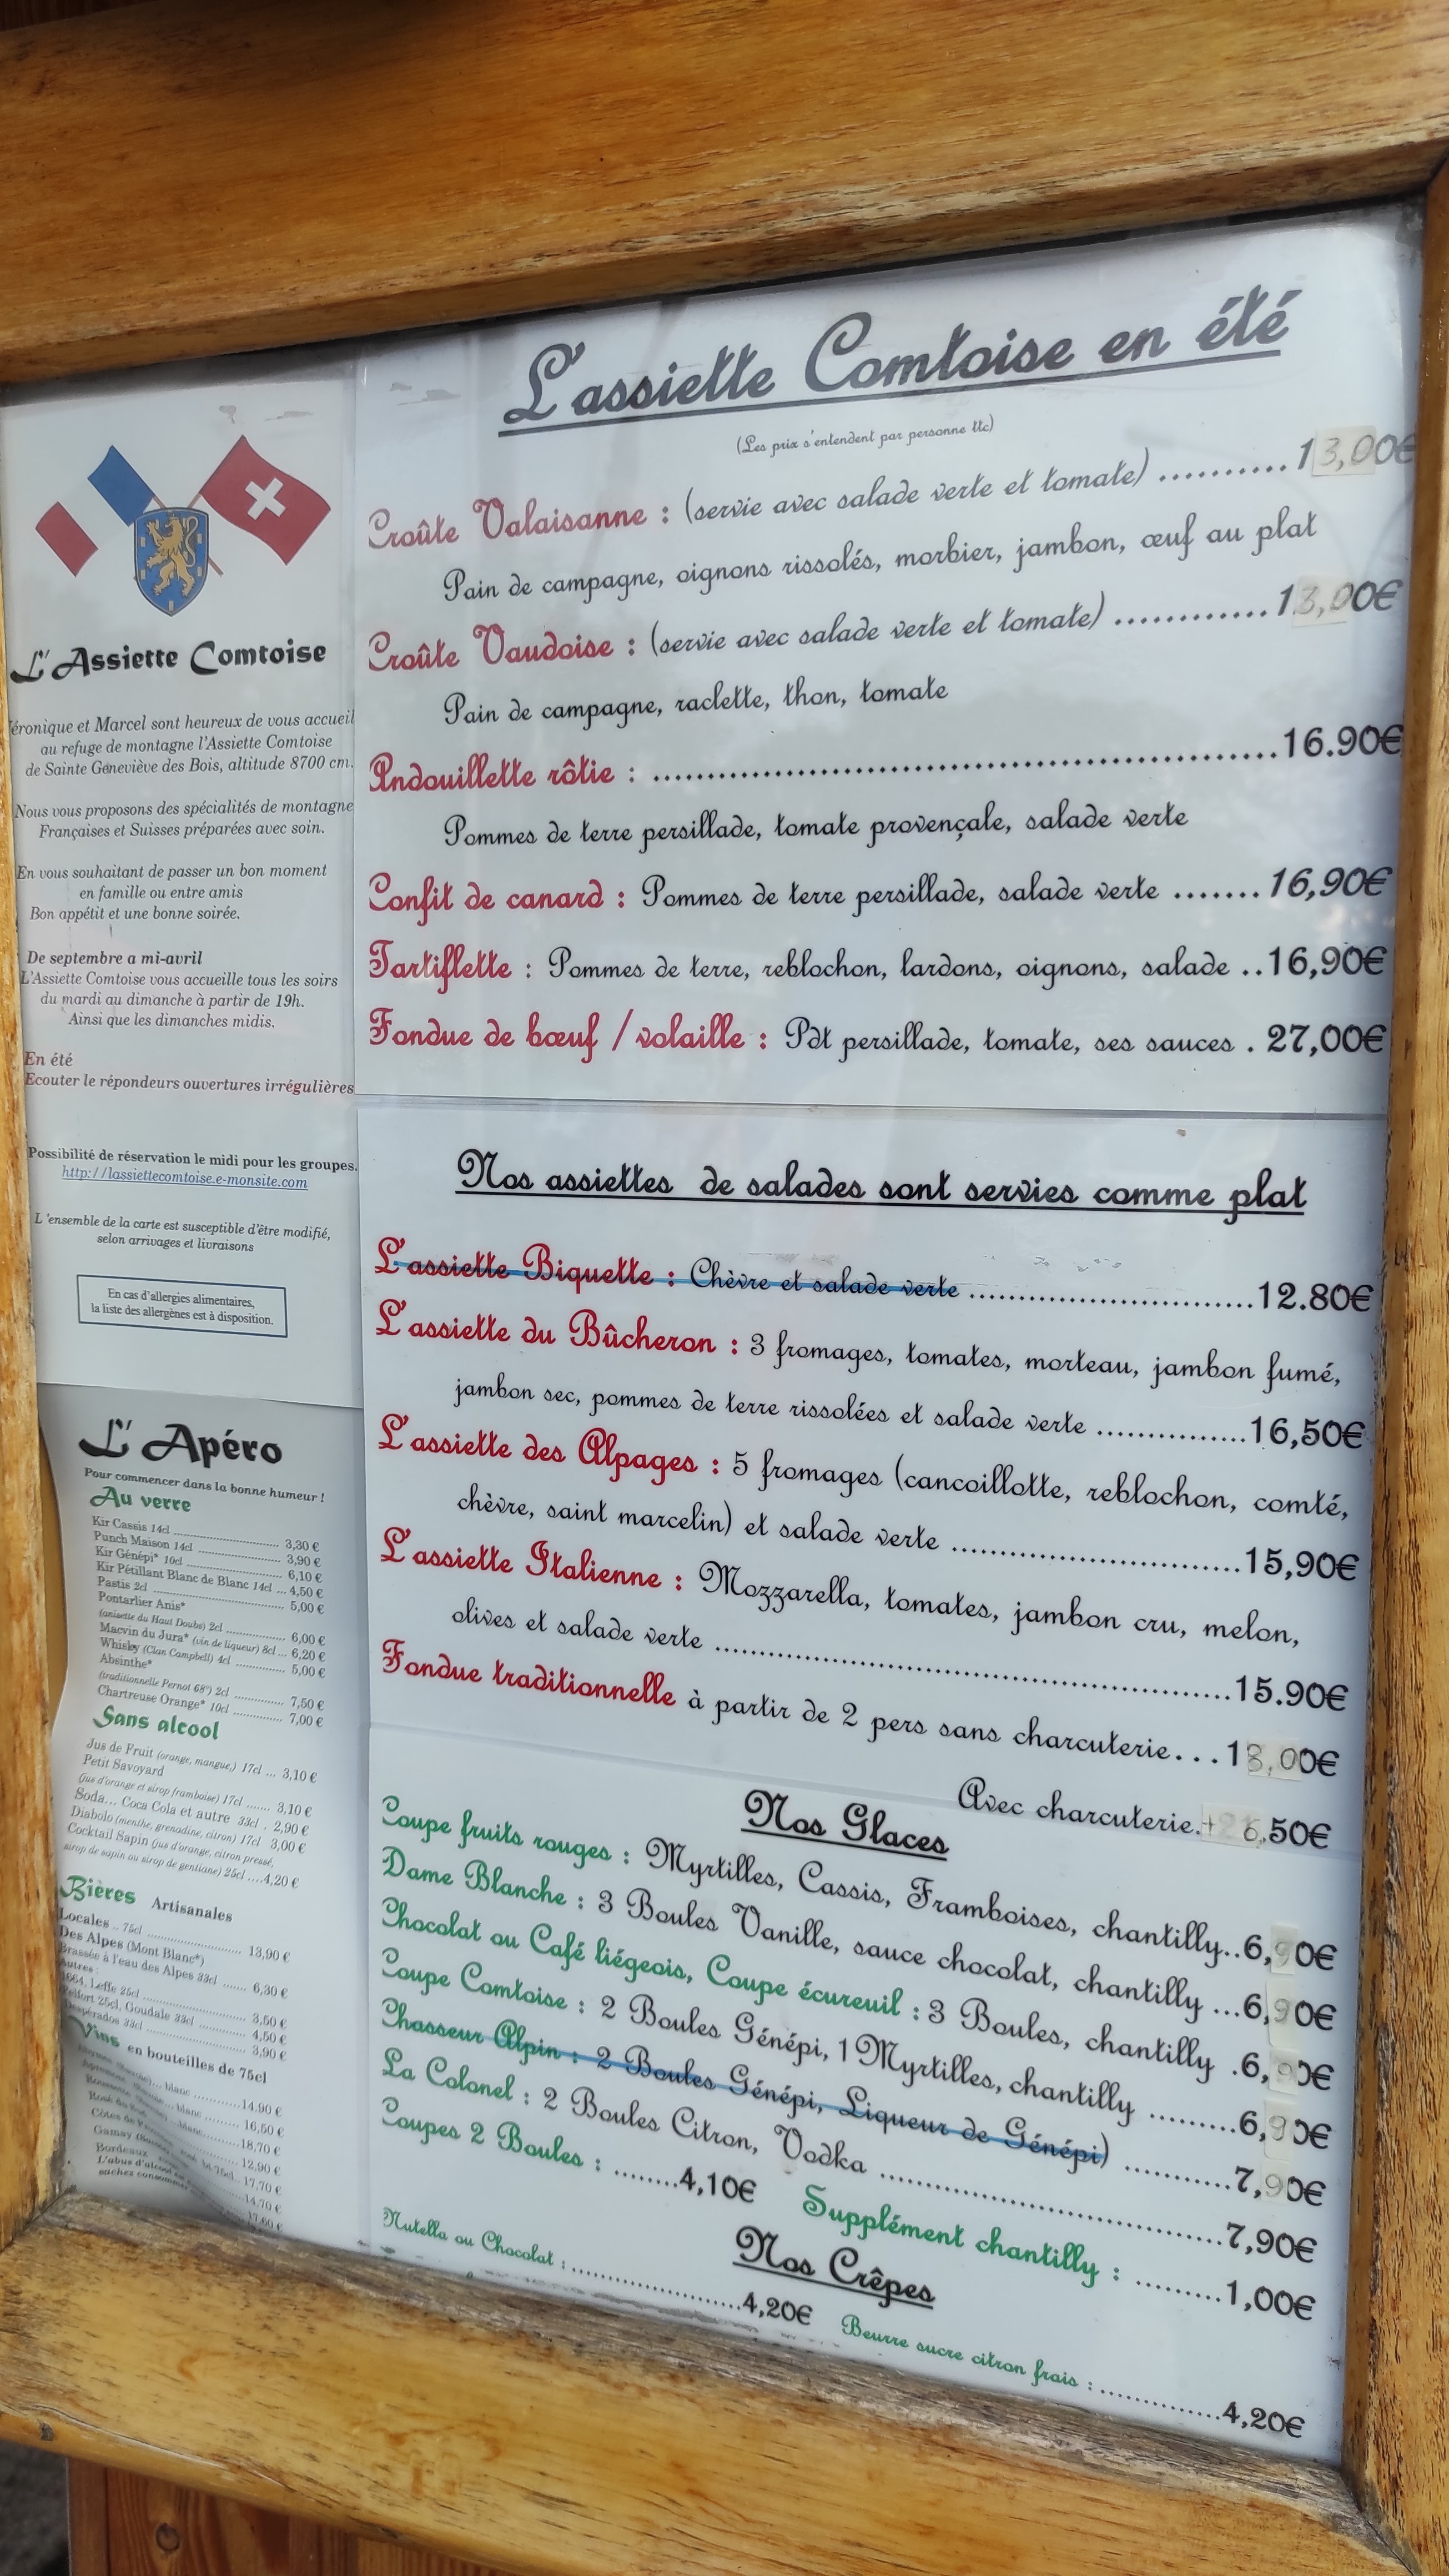 L'Assiette Comtoise
Véronique et Marcel sont heureux de vous accueil
au refuge de montagne l'Assiette Comtoise
de Sainte Geneviève des Bois, altitude 8700 cm.
Nous vous proposons des spécialités de montagne
Françaises et Suisses préparées avec soin.
En vous souhaitant de passer un bon moment
en famille ou entre amis
Bon appétit et une bonne soirée.
De septembre a mi-avril
L'Assiette Comtoise vous accueille tous les soirs
du mardi au dimanche à partir de 19h.
Ainsi que les dimanches midis.
En été
Ecouter le répondeurs ouvertures irrégulières
Possibilité de réservation le midi pour les groupes.
http://lassiettecomtoise.e-monsite.com
L'ensemble de la carte est susceptible d'être modifié,
selon arrivages et livraisons
En cas d'allergies alimentaires,
la liste des allergènes est à disposition.
L'Apéro
Pour commencer dans la bonne humeur !
Au verre
Kir Cassis 14cl ........ 3,30 €
Punch Maison 14cl ........ 3,90 €
Kir Génépi* 10cl ........ 6,10 €
Kir Pétillant Blanc de Blanc 14cl ... 4,50 €
Pastis 2cl ........ 5,00 €
Pontarlier Anis*
(anisette du Haut Doubs) 2cl ........ 6,00 €
Macvin du Jura* (vin de liqueur) 8cl ... 6,20 €
Whisky (Clan Campbell) 4cl ........ 5,00 €
Absinthe*
(traditionnelle Pernot 68°) 2cl ........ 7,50 €
Chartreuse Orange* 10cl ........ 7,00 €
Sans alcool
Jus de Fruit (orange, mangue,) 17cl ... 3,10 €
Petit Savoyard
(jus d'orange et sirop framboise) 17cl ....... 3,10 €
Soda... Coca Cola et autre 33cl . 2,90 €
Diabolo (menthe, grenadine, citron) 17cl 3,00 €
Cocktail Sapin (jus d'orange, citron pressé,
sirop de sapin ou sirop de gentiane) 25cl ....4,20 €
Bières Artisanales
Locales .. 75cl ........ 13,90 €
Des Alpes (Mont Blanc*)
Brassée à l'eau des Alpes 33cl ....... 6,30 €
Autres :
1664, Leffe 25cl ........ 3,50 €
Pelfort 25cl, Goudale 33cl ........ 4,50 €
Desperados 33cl ........ 3,90 €
Vins en bouteilles de 75cl
blanc ........14,90 €
blanc ........ 16,50 €
........18,70 €
........ 12,90 €
17,70 €
Gamay ........14,70 €
Bordeaux
L'abus d'alcool
L'assiette Comtoise en été
(Les prix s'entendent par personne ttc)
Croûte Valaisanne : (servie avec salade verte et tomate) ..........13,00€
Pain de campagne, oignons rissolés, morbier, jambon, œuf au plat
Croûte Vaudoise : (servie avec salade verte et tomate) ............13,00€
Pain de campagne, raclette, thon, tomate
Andouillette rôtie : ........16.90€
Pommes de terre persillade, tomate provençale, salade verte
Confit de canard : Pommes de terre persillade, salade verte .......16,90€
Tartiflette : Pommes de terre, reblochon, lardons, oignons, salade ..16,90€
Fondue de bœuf / volaille : Pdt persillade, tomate, ses sauces . 27,00€
Nos assiettes de salades sont servies comme plat
L'assiette Biquette : Chèvre et salade verte ........12.80€
L'assiette du Bûcheron : 3 fromages, tomates, morteau, jambon fumé,
jambon sec, pommes de terre rissolées et salade verte ...............16,50€
L'assiette des Alpages : 5 fromages (cancoillotte, reblochon, comté,
chèvre, saint marcelin) et salade verte ........15,90€
L'assiette Italienne : Mozzarella, tomates, jambon cru, melon,
olives et salade verte ........15.90€
Fondue traditionnelle à partir de 2 pers sans charcuterie...18,00€
Avec charcuterie.+ 6,50€
Nos Glaces
Coupe fruits rouges : Myrtilles, Cassis, Framboises, chantilly..6,90€
Dame Blanche : 3 Boules Vanille, sauce chocolat, chantilly ...6,90€
Chocolat ou Café liégeois, Coupe écureuil : 3 Boules, chantilly .6,90€
Coupe Comtoise : 2 Boules Génépi, 1 Myrtilles, chantilly .........6,90€
Chasseur Alpin : 2 Boules Génépi, Liqueur de Génépi) ...........7,90€
La Colonel : 2 Boules Citron, Vodka ........7,90€
Coupes 2 Boules : .......4,10€ Supplément chantilly : .........1,00€
Nos Crêpes
Nutella ou Chocolat : ........4,20€ Beurre sucre citron frais : ........4,20€